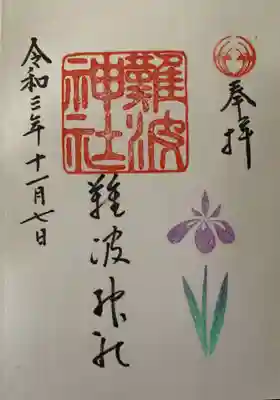 奉拝
難波
神社
難波神社
令和三年十一月七日